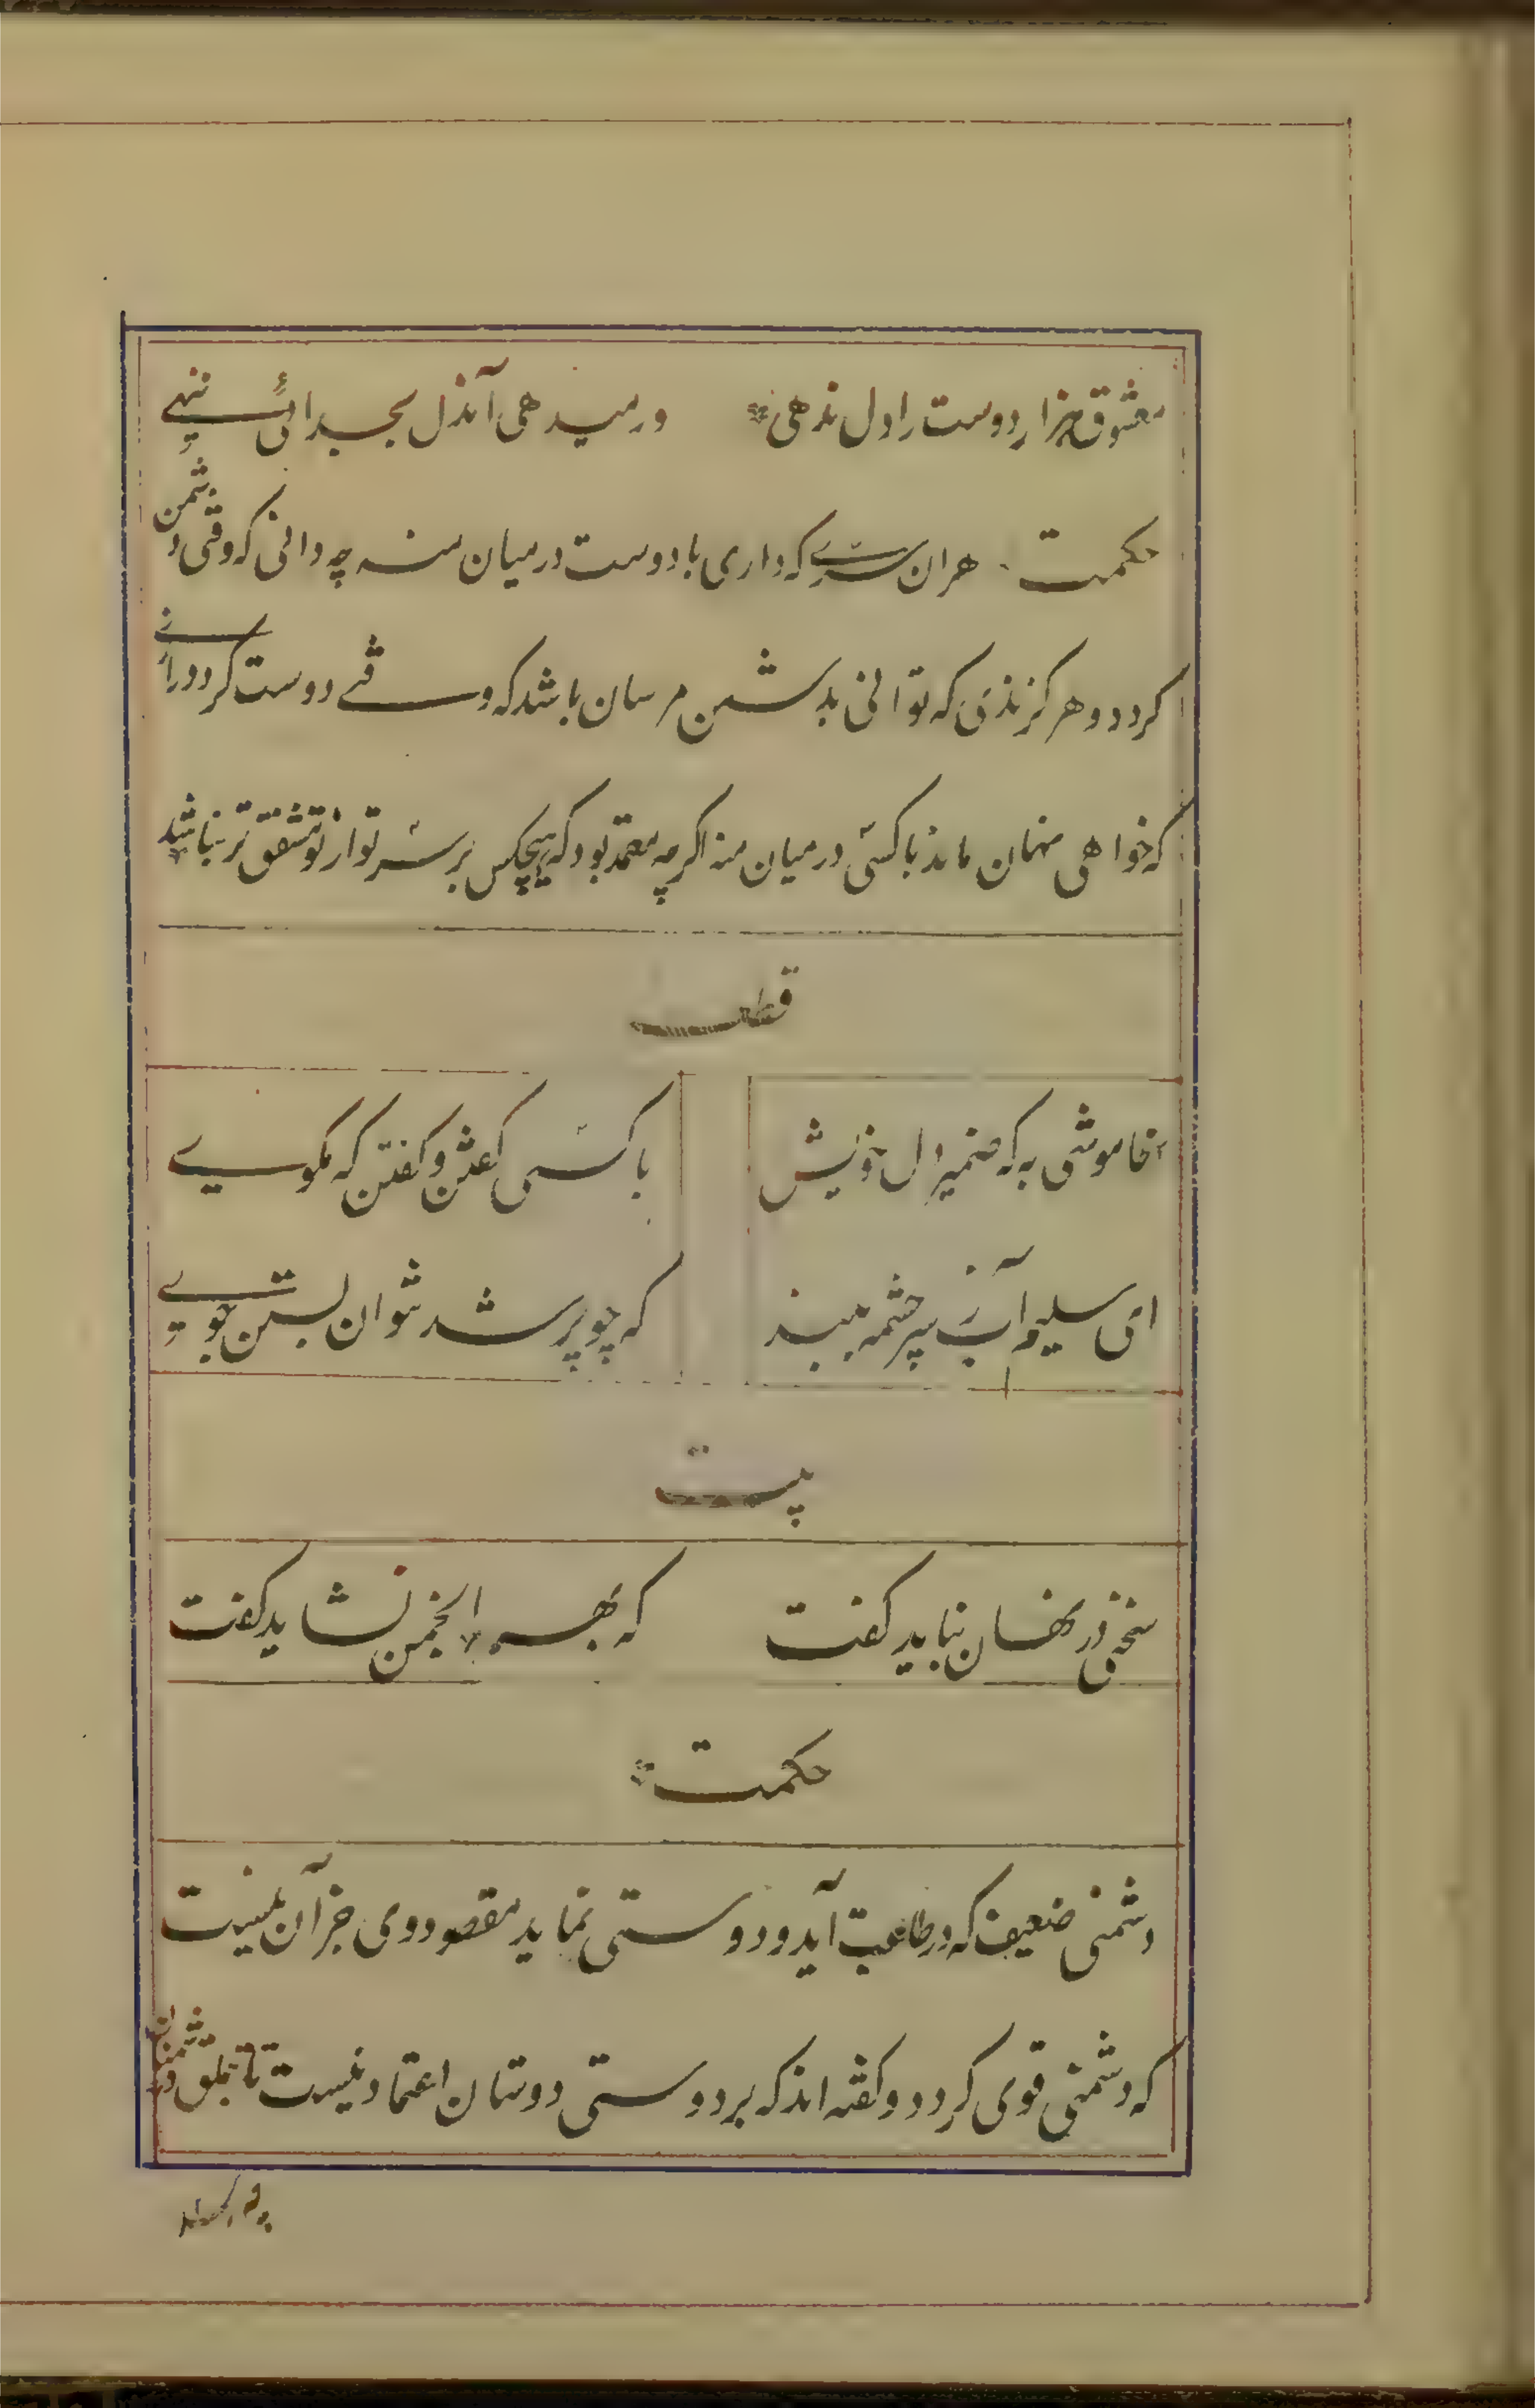 معشوق هزار دوست را دل ندهی ور میدهی آندل بجدائی بنهی
حکمت هران سری که داری با دوست درمیان منه چه دانی که وقتی دشمن
کردد و هر کزندی که توانی بدشمن مرسان باشد که وقتی دوست کردد رازی
که خواهی نهان ماند باکسی درمیان منه اکرچه معتمد بود که هیچکس بر سر تو از تو مشفق تر نباشد
قطعه
خاموشی به که ضمیر دل خویش باکسی کفتن و کفتن که مکوی
ای سلیم آب ز سرچشمه ببند که چو پر شد نتوان بستن جوی
بیت
سخنی در نهان نباید کفت که بهر انجمن نشاید کفت
حکمت
دشمنی ضعیف که در طاعت آید و دوستی نماید مقصود وی جز آن نیست
که دشمنی قوی کردد و کفته اند که بر دوستی دوستان اعتماد نیست تا بتملق دشمنان